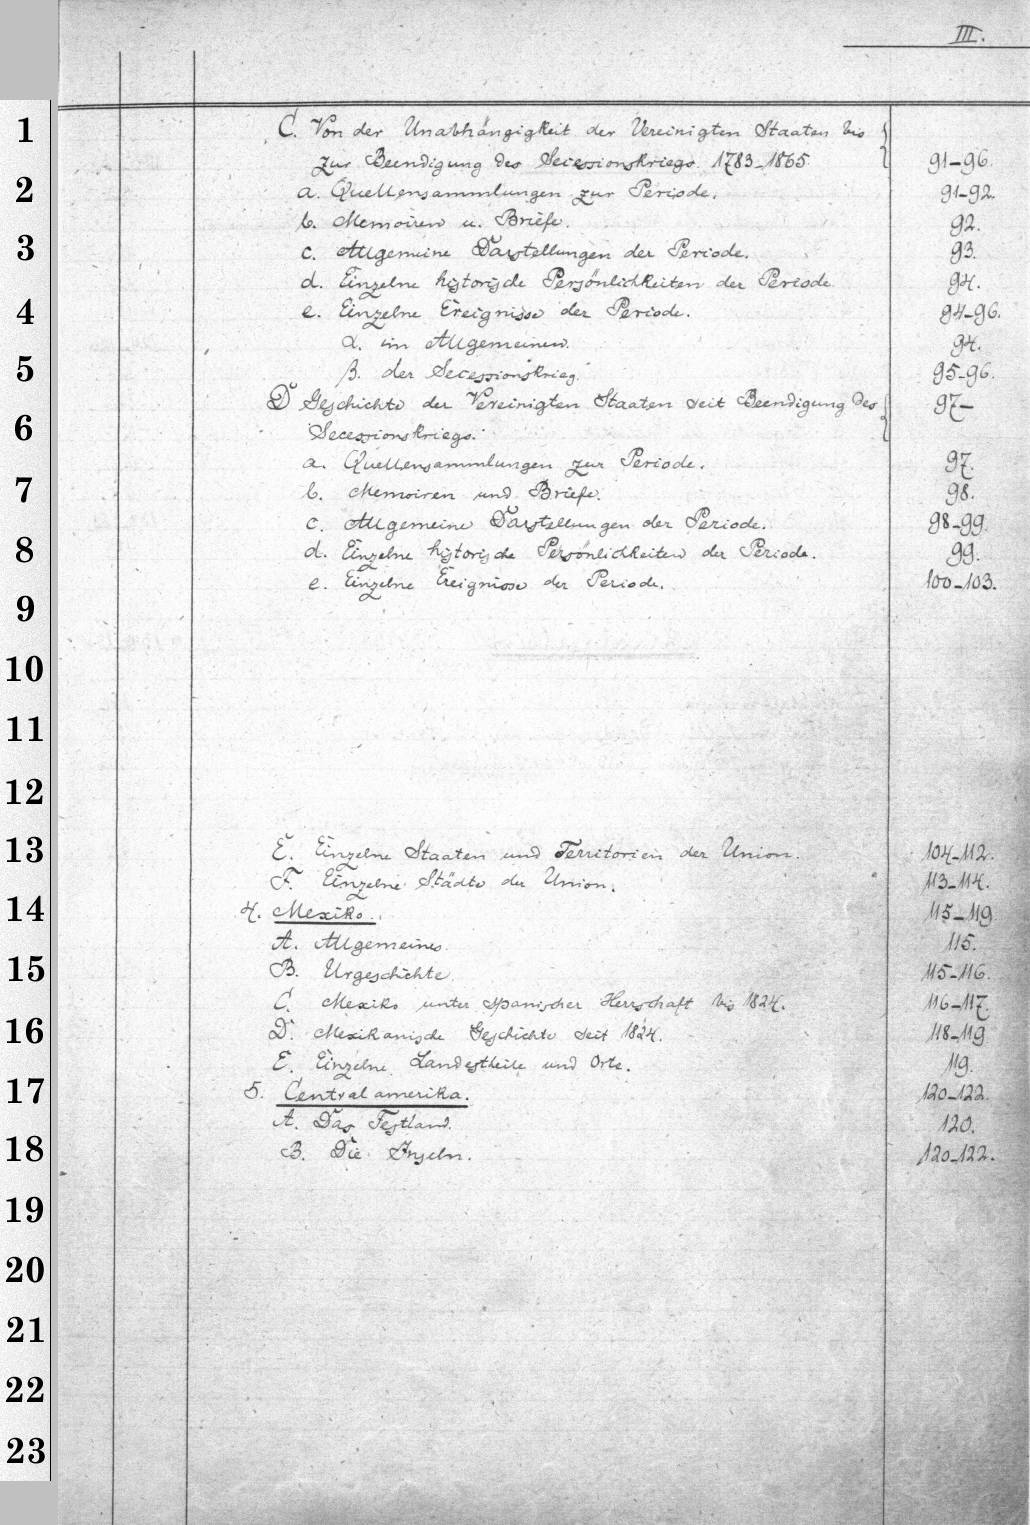 III.
1
C. Von der Unabhängigkeit der Vereinigten Staaten bis
zur Beendigung des Secessionskriegs 1783-1865. 91-96.
2
a. Quellensammlungen zur Periode. 91-92.
b. Memoiren u. Briefe. 92.
3
c. Allgemeine Darstellungen der Periode. 93.
d. Einzelne historische Persönlichkeiten der Periode 94.
4
e. Einzelne Ereignisse der Periode. 94-96.
α. im Allgemeinen. 94.
5
β. der Secessionskrieg. 95-96.
D Geschichte der Vereinigten Staaten seit Beendigung des 97-
6
Secessionskriegs.
a. Quellensammlungen zur Periode. 97.
7
b. Memoiren und Briefe. 98.
c. Allgemeine Darstellungen der Periode. 98-99.
8
d. Einzelne historische Persönlichkeiten der Periode. 99.
e. Einzelne Ereignisse der Periode. 100-103.
9
10
11
12
13
E. Einzelne Staaten und Territorien der Union. 104-112.
F. Einzelne Städte der Union. 113-114.
14
4. Mexiko. 115-119
A. Allgemeines. 115.
15
B. Urgeschichte. 115-116.
C. Mexiko unter spanischer Herrschaft bis 1824. 116-117
16
D. Mexikanische Geschichte seit 1824. 118-119
E. Einzelne Landestheile und Orte. 119.
17
5. Centralamerika. 120-122.
A. Das Festland. 120.
18
B. Die Inseln. 120-122.
19
20
21
22
23